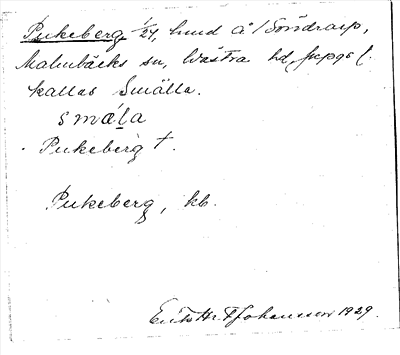 Pukeberg 1/24, hmd å Söndrarp,
Malmbäcks sn, Västra hd, Jkpgs l.
kallas Smälla.
smala
Pukeberg †.
Pukeberg, kb.
Johansson 1929.